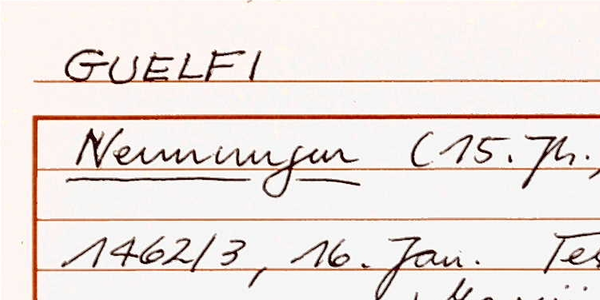 GUELFI
Nennungen (15. Jh.,
1462/3, 16. Jan. Tes